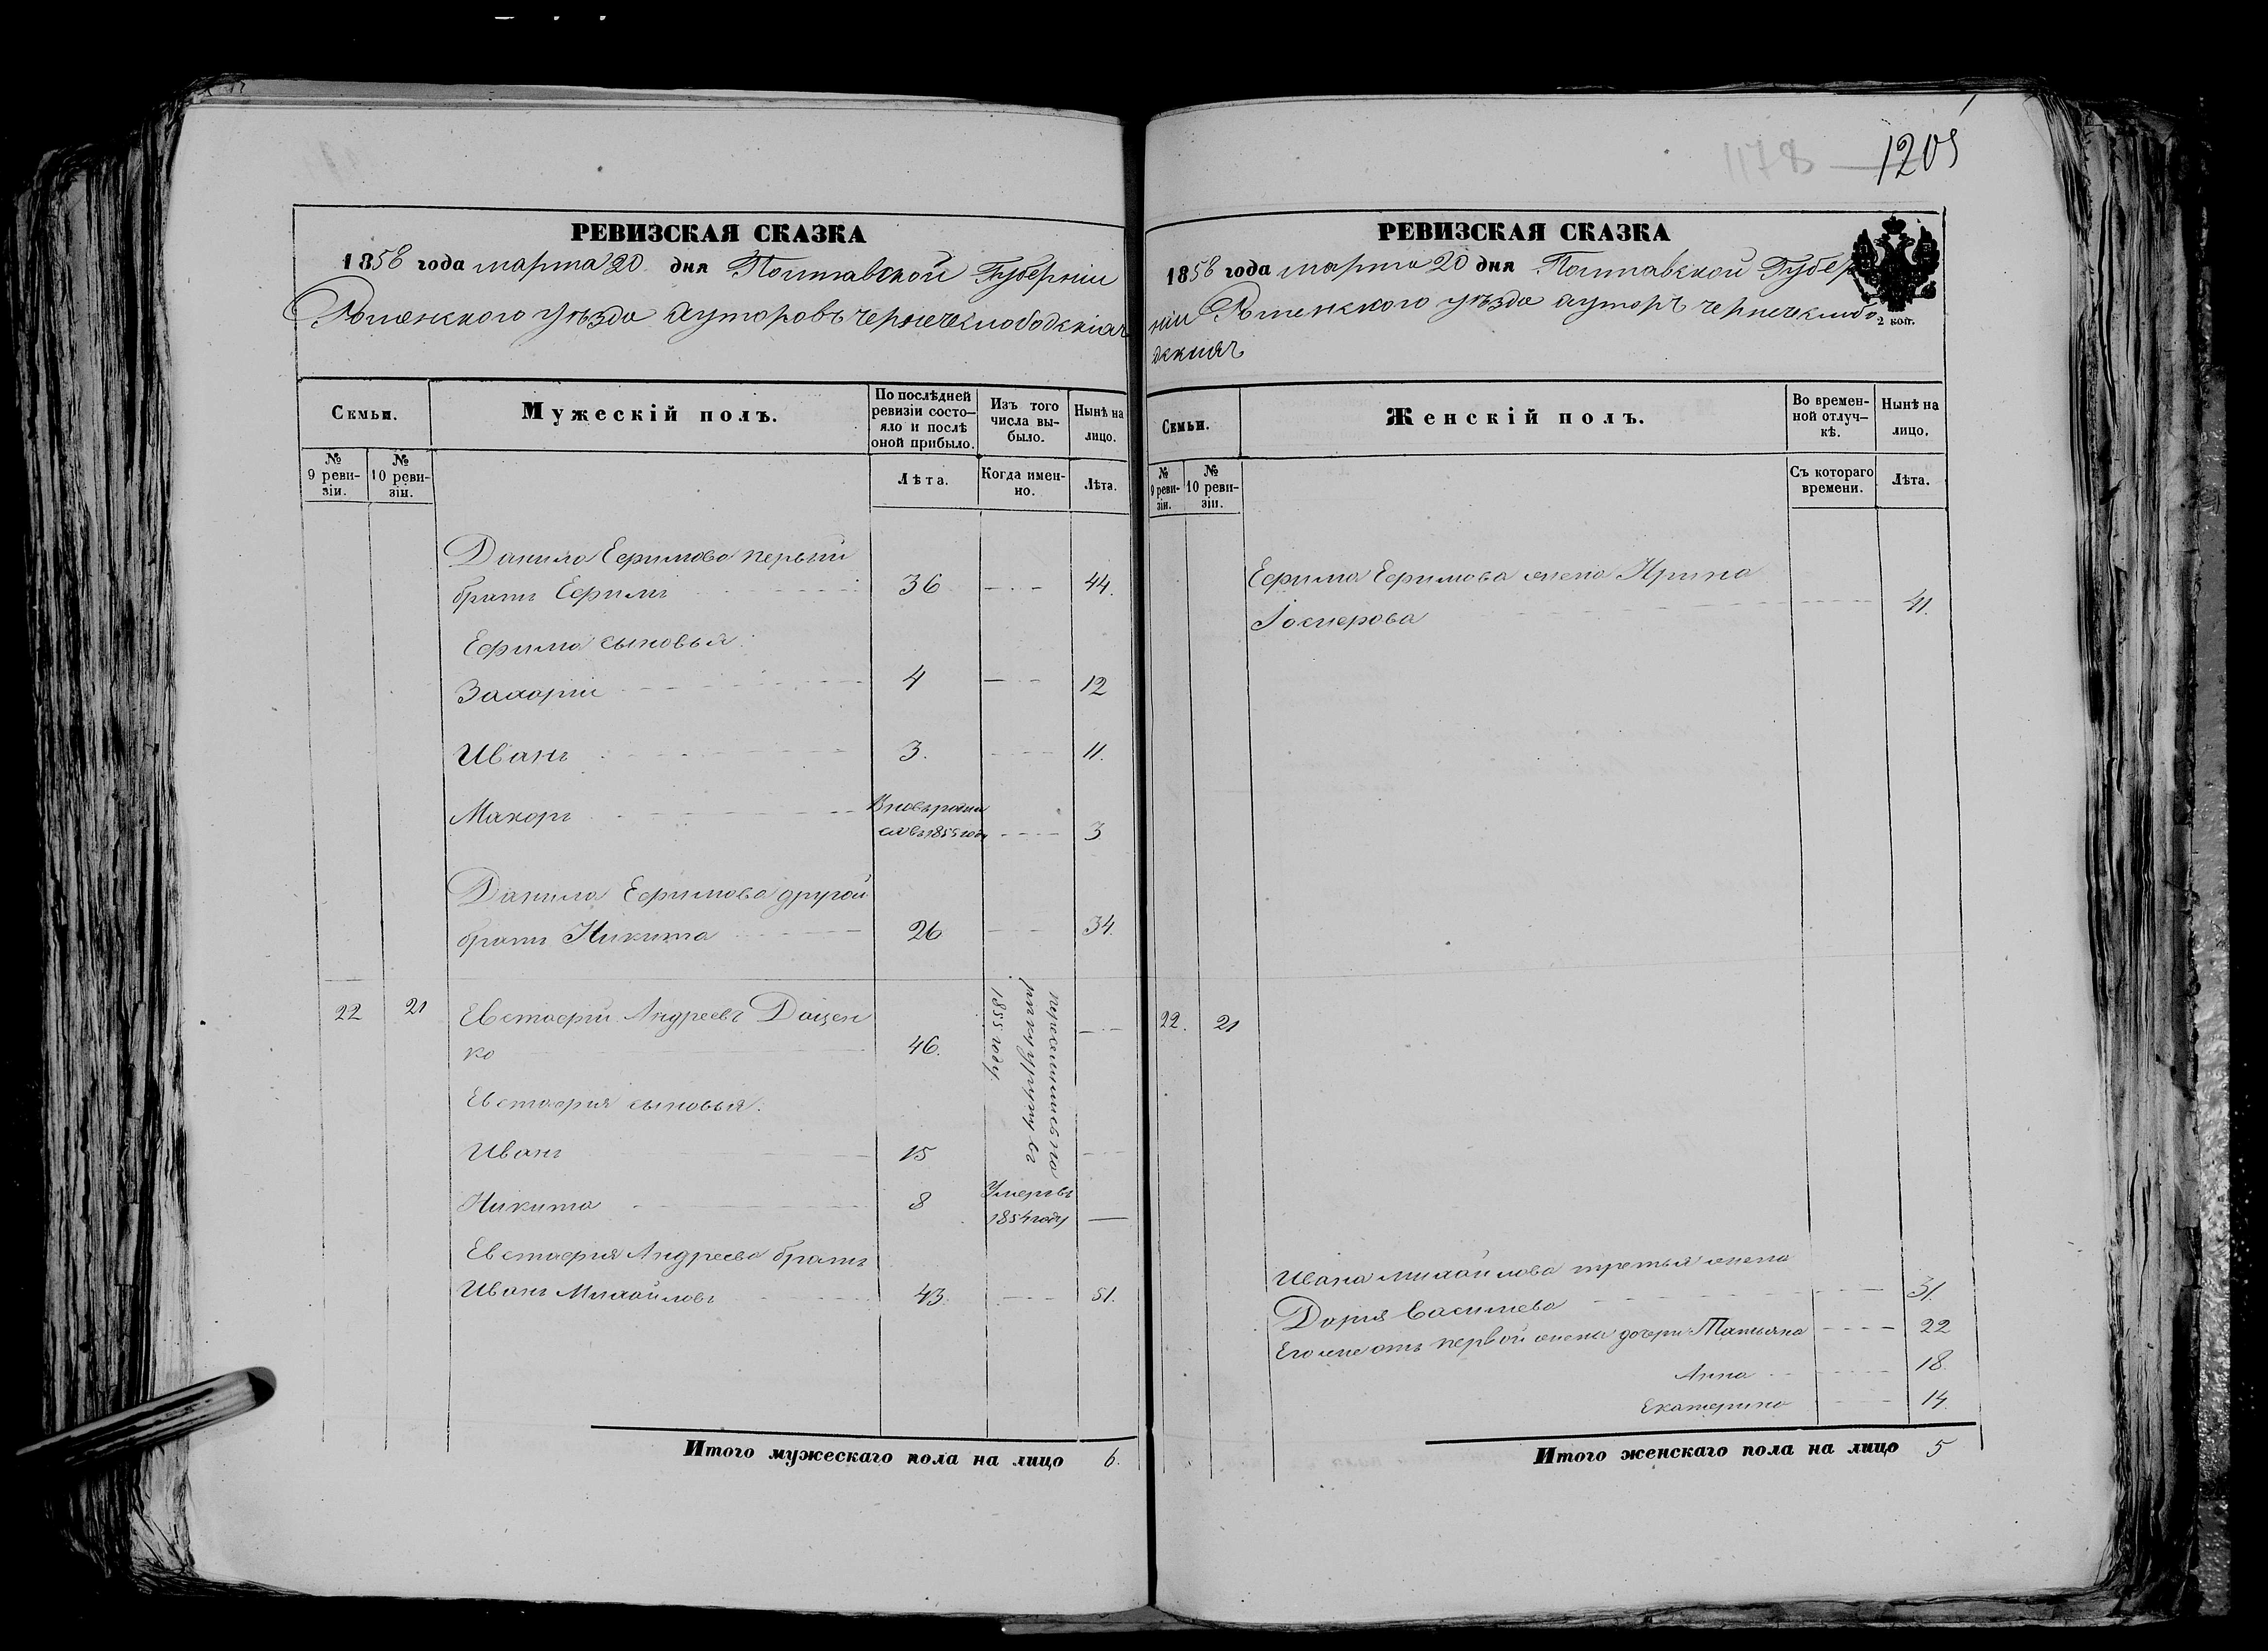 1178 — 1205
РЕВИЗСКАЯ СКАЗКА
1858 года марта 20 дня Полтавской Губерніи
Роменского уѣзда хуторовъ чернечеслободскихъ
Семьи.
Мужескій полъ.
По послѣдней ревизіи состо-
яло и послѣ
оной прибыло.
Изъ того
числа вы-
было.
Нынѣ на
лицо.
№
9 реви-
зіи.
№
10 реви-
зіи.
Лѣта.
Когда имен-
но.
Лѣта.
Данила Ефимова первый
братъ Ефимъ 36 44.
Ефима сыновья:
Захорій 4 12
Иванъ 3. 11.
Макоръ Вновь родил
ся въ 1855 году 3
Данила Ефимова другой
братъ Никита 26 34.
22 21 Евстафій Андреевъ Доцен
ко 46.
1855 году
Евстафія сыновья:
Иванъ 15
Никита 8 Умеръ въ
1854 году
Евстафія Андреева братъ
Иванъ Михайловъ 43. 51.
Итого мужескаго пола на лицо 6.
РЕВИЗСКАЯ СКАЗКА
1858 года марта 20 дня Полтавской Губер
ніи Роменского уѣзда хуторъ чернечеслобо
дскихъ
2 коп.
Семьи.
Женскій полъ.
Во времен-
ной отлуч-
кѣ.
Нынѣ на
лицо.
№
9 реви-
зіи.
№
10 реви-
зіи.
Съ котораго
времени.
Лѣта.
Ефима Ефимова жена Ирина
41.
22. 21
Ивана Михайлова третья жена
Дарія Васильева 31.
Его же отъ первой жены дочери Татьяна 22
Анна 18.
Екатерина 14.
Итого женскаго пола на лицо 5